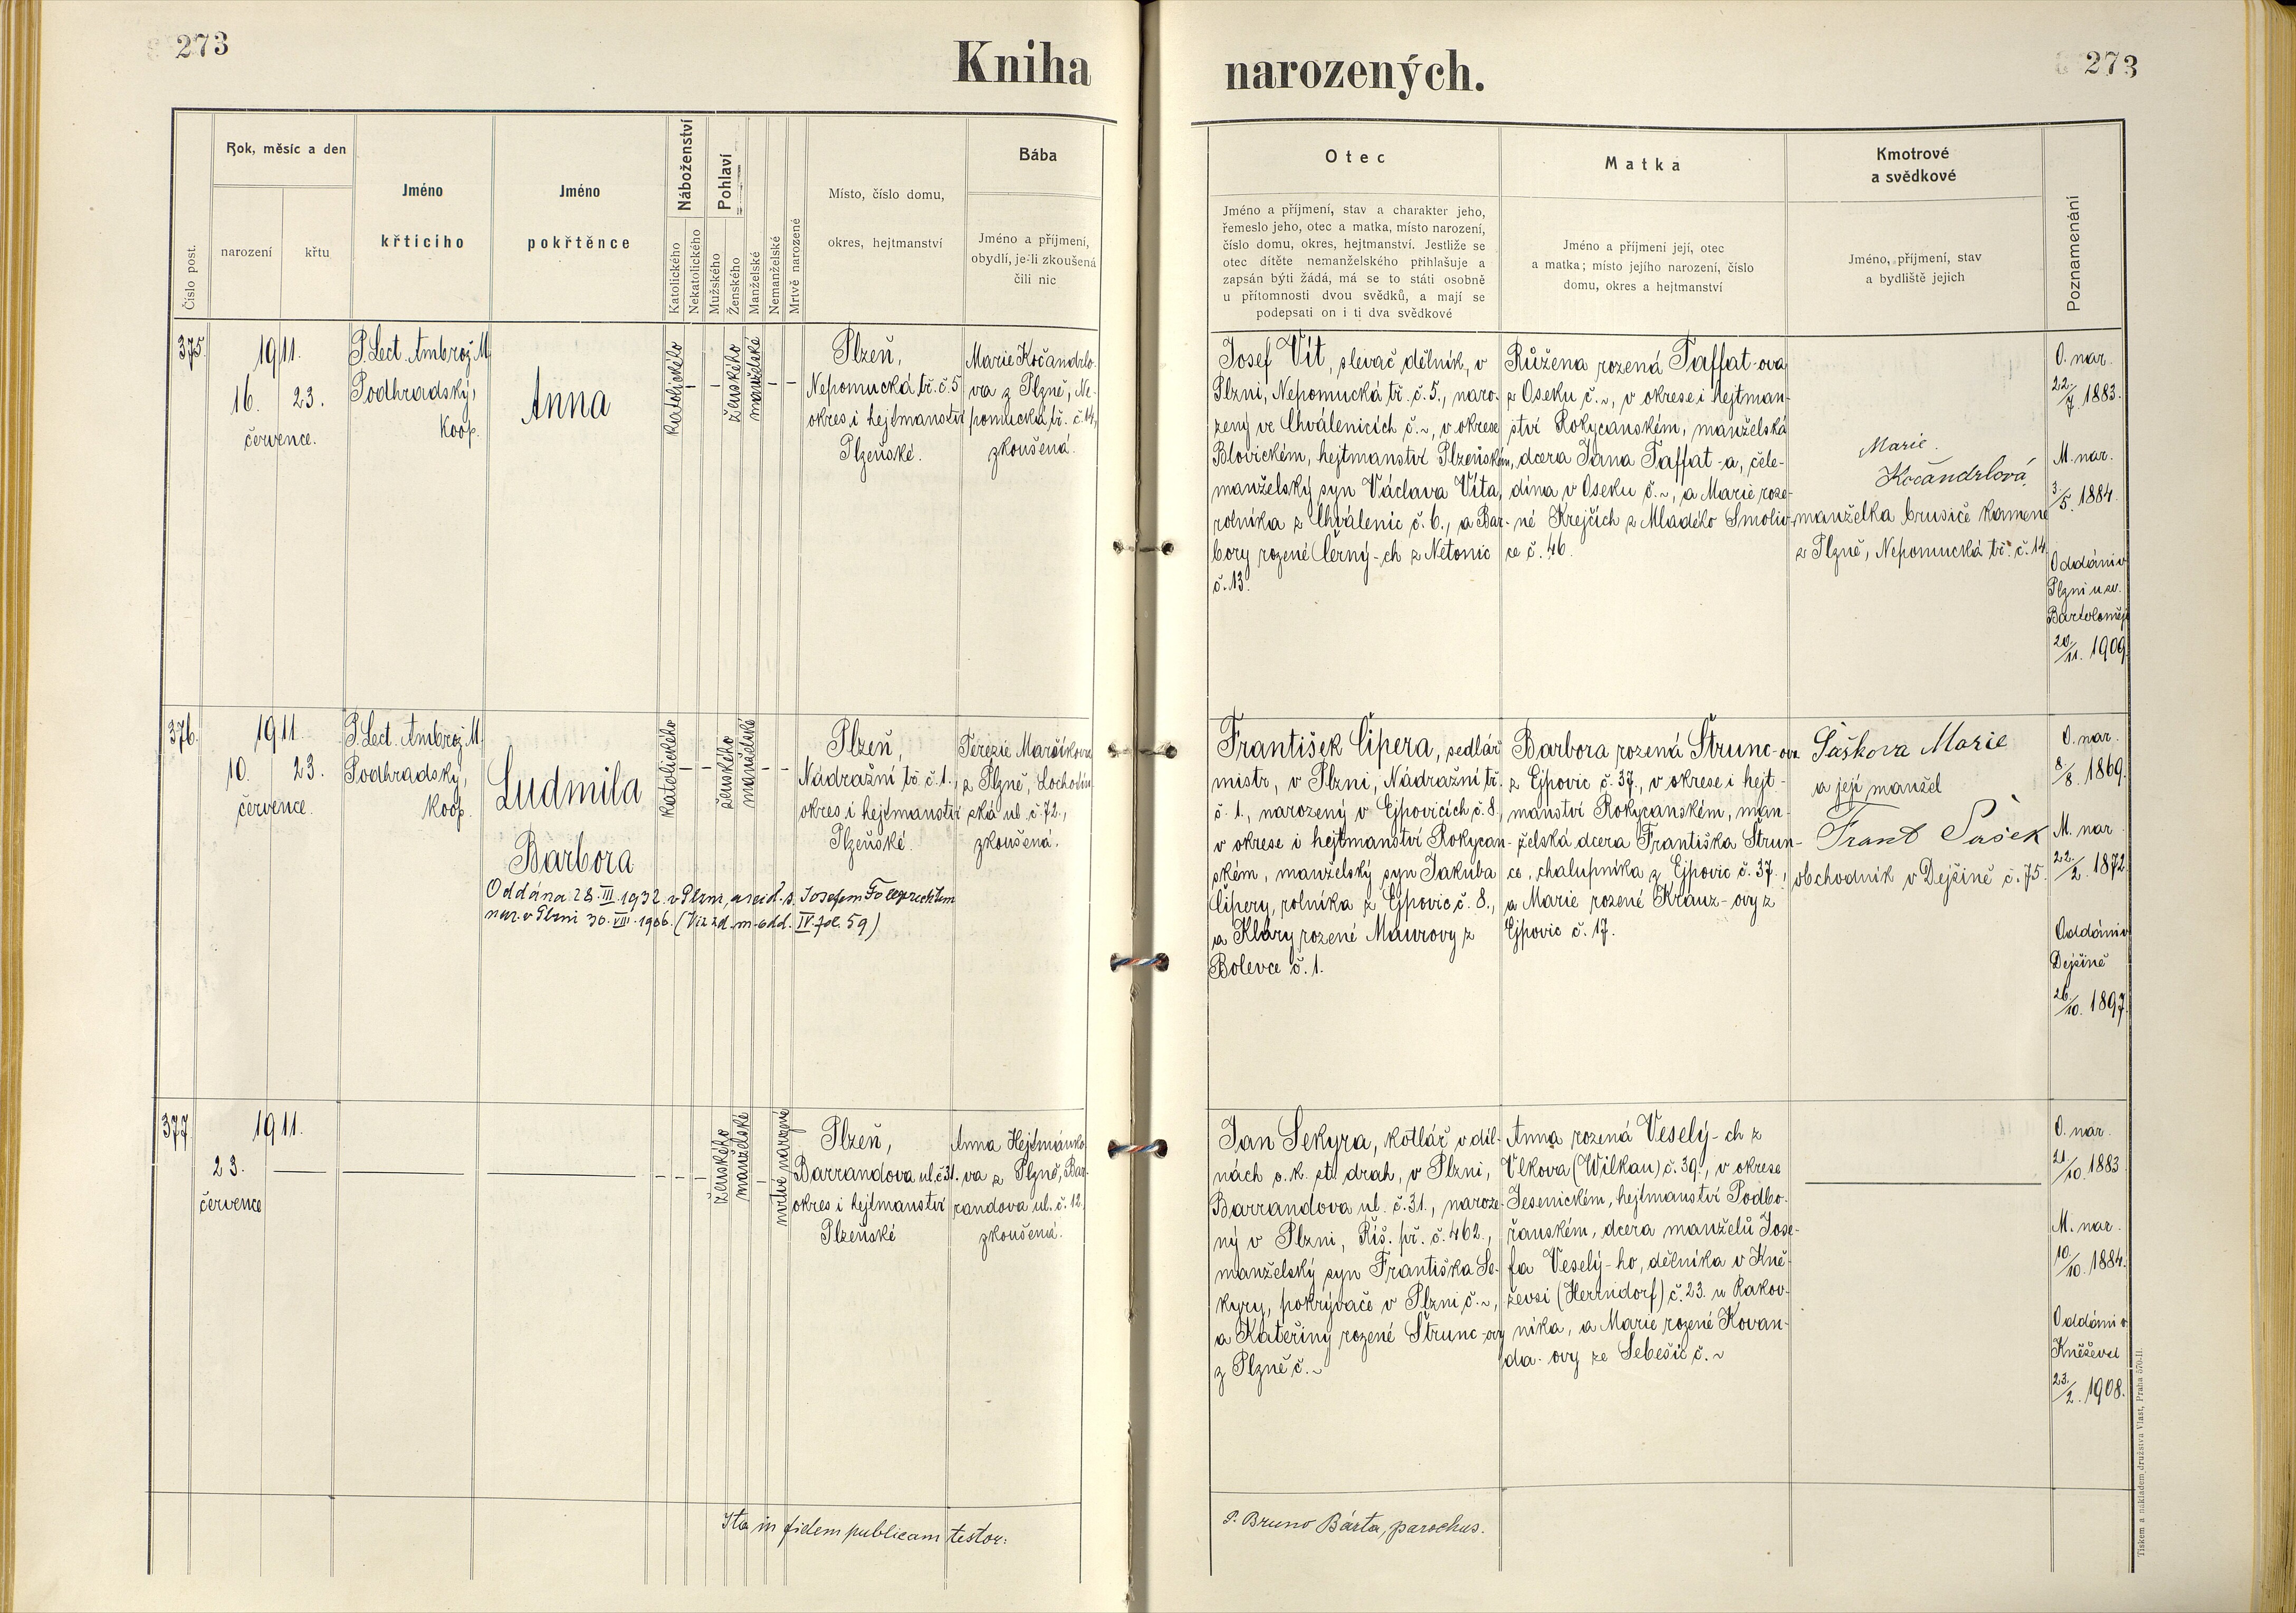 273
Kniha
narozených.
273
Číslo post.
Rok, měsíc a den
narození
křtu
Jméno
křticího
Jméno
pokřtěnce
Náboženství
Katolického
Nekatolického
Pohlaví
Mužského
Ženského
Manželské
Nemanželské
Mrtvě narozené
Místo, číslo domu,
okres, hejtmanství
Bába
Jméno a příjmení,
obydlí, je-li zkoušená
čili nic
Otec
Jméno a příjmení, stav a charakter jeho,
řemeslo jeho, otec a matka, místo narození,
číslo domu, okres, hejtmanství. Jestliže se
otec dítěte nemanželského přihlašuje a
zapsán býti žádá, má se to státi osobně
u přítomnosti dvou svědků, a mají se
podepsati on i ti dva svědkové
Matka
Jméno a příjmení její, otec
a matka; místo jejího narození, číslo
domu, okres a hejtmanství
Kmotrové
a svědkové
Jméno, příjmení, stav
a bydliště jejich
Poznamenání
375.
1911.
16. 23.
července.
P. Lect. Ambrož M.
Podhradský,
koop.
Anna
katolického
ženského
manželské
Plzeň,
Nepomucká tř. č. 5
okres i hejtmanství
Plzeňské.
Marie Kočandrlo-
va z Plzně, Ne-
pomucká tř. č. 14,
zkoušená.
Josef Vít, slevač dělník, v
Plzni, Nepomucká tř. č. 5., naro-
zený ve Chválenicích č. ~, v okrese
Blovickém, hejtmanství Plzeňském,
manželský syn Václava Víta,
rolníka z Chválenic č. 6., a Bar-
bory rozené Černý-ch z Netonic
č. 13.
Růžena rozená Taffat-ova
z Oseku č. ~, v okrese i hejtman-
ství Rokycanském, manželská
dcera Jana Taffat-a, čele-
dína v Oseku č. ~, a Marie roze-
né Krejčích z Mladého Smoliv-
ce č. 46.
Marie
Kočandrlová,
manželka brusiče kamene
z Plzně, Nepomucká tř. č. 14
O. nar.
22./7. 1883.
M. nar.
3./5. 1884.
Oddáni v
Plzni u sv.
Bartoloměje
20./11. 1909.
376.
1911.
10. 23.
července.
P. Lect. Ambrož M.
Podhradský,
koop.
Ludmila
Barbora
Oddána 28. III. 1932. v Plzni, arcid. s Josefem
nar. v Plzni 30. VIII. 1906. (Viz zd. m. odd. IV. fol. 59)
katolického
ženského
manželské
Plzeň,
Nádražní tř. č. 1.,
okres i hejtmanství
Plzeňské.
Terezie Maršíkova
z Plzně, Lochotín-
ská ul. č. 72.,
zkoušená.
František Cipera, sedlář
mistr, v Plzni, Nádražní tř.
č. 1., narozený v Ejpovicích č. 8.,
v okrese i hejtmanství Rokycan-
ském, manželský syn Jakuba
Cipery, rolníka z Ejpovic č. 8.,
a Kláry rozené Maurovy z
Bolevce č. 1.
Barbora rozená Štrunc-ova
z Ejpovic č. 37., v okrese i hejt-
manství Rokycanském, man-
želská dcera Františka Štrun-
ce, chalupníka z Ejpovic č. 37.,
a Marie rozené Kranz-ovy z
Ejpovic č. 17.
Šaškova Marie
a její manžel
Frant Šašek
obchodník v Dejšině č. 75.
O. nar.
8./8. 1869.
M. nar.
22./2. 1872.
Oddáni v
Dejšině
26./10. 1897.
377
1911.
23.
července
ženského
manželské
mrtvě narozené
Plzeň,
Barrandova ul. č. 31.
okres i hejtmanství
Plzeňské
Anna Hejtmánko-
va z Plzně, Bar-
randova ul. č. 12.
zkoušená.
Jan Sekyra, kotlář v díl-
nách c. k. st. drah, v Plzni,
Barrandova ul. č. 31., naroze-
ný v Plzni, Říš. př. č. 462.,
manželský syn Františka Se-
kyry, pokrývače v Plzni č. ~,
a Kateřiny rozené Štrunc-ovy
z Plzně č. ~
Anna rozená Veselý-ch z
Vlkova (Wilkau) č. 39., v okrese
Jesenickém, hejtmanství Podbo-
řanském, dcera manželů Jose-
fa Veselý-ho, dělníka v Kně-
ževsi (Herrndorf) č. 23. u Rakov-
níka, a Marie rozené Kovan-
da-ovy ze Sebešic č. ~
O. nar.
21./10. 1883.
M. nar.
10./10. 1884.
Oddáni v
Kněževsi
23./2. 1908.
Ita in fidem publicam testor:
P. Bruno Bárta, parochus.
Tiskem a nákladem družstva Vlast, Praha 570-II.